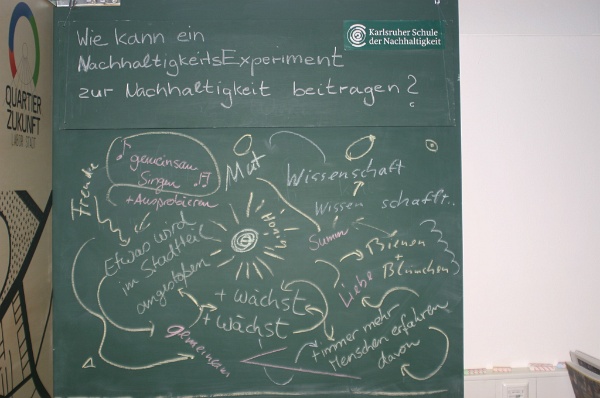 QUARTIER
ZUKUNFT
LABOR STADT
Karlsruher Schule
der Nachhaltigkeit
Wie kann ein
NachhaltigkeitsExperiment
zur Nachhaltigkeit beitragen?
gemeinsam
Singen
+ Ausprobieren
Freude
Mut
Wissenschaft
Wissen schafft..
Honig
Summ
Bienen
+
Blümchen
Liebe
Etwas wird
im Stadtteil
angestoßen
+ wächst
+ wächst
gemeinsam
+ immer mehr
Menschen erfahren
davon